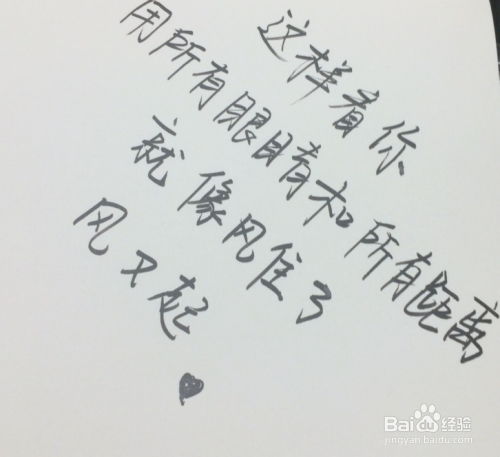 这样看你
用所有眼睛和所有距离
就像风住了
风又起
Bai du 经验
jingyan.baidu.com